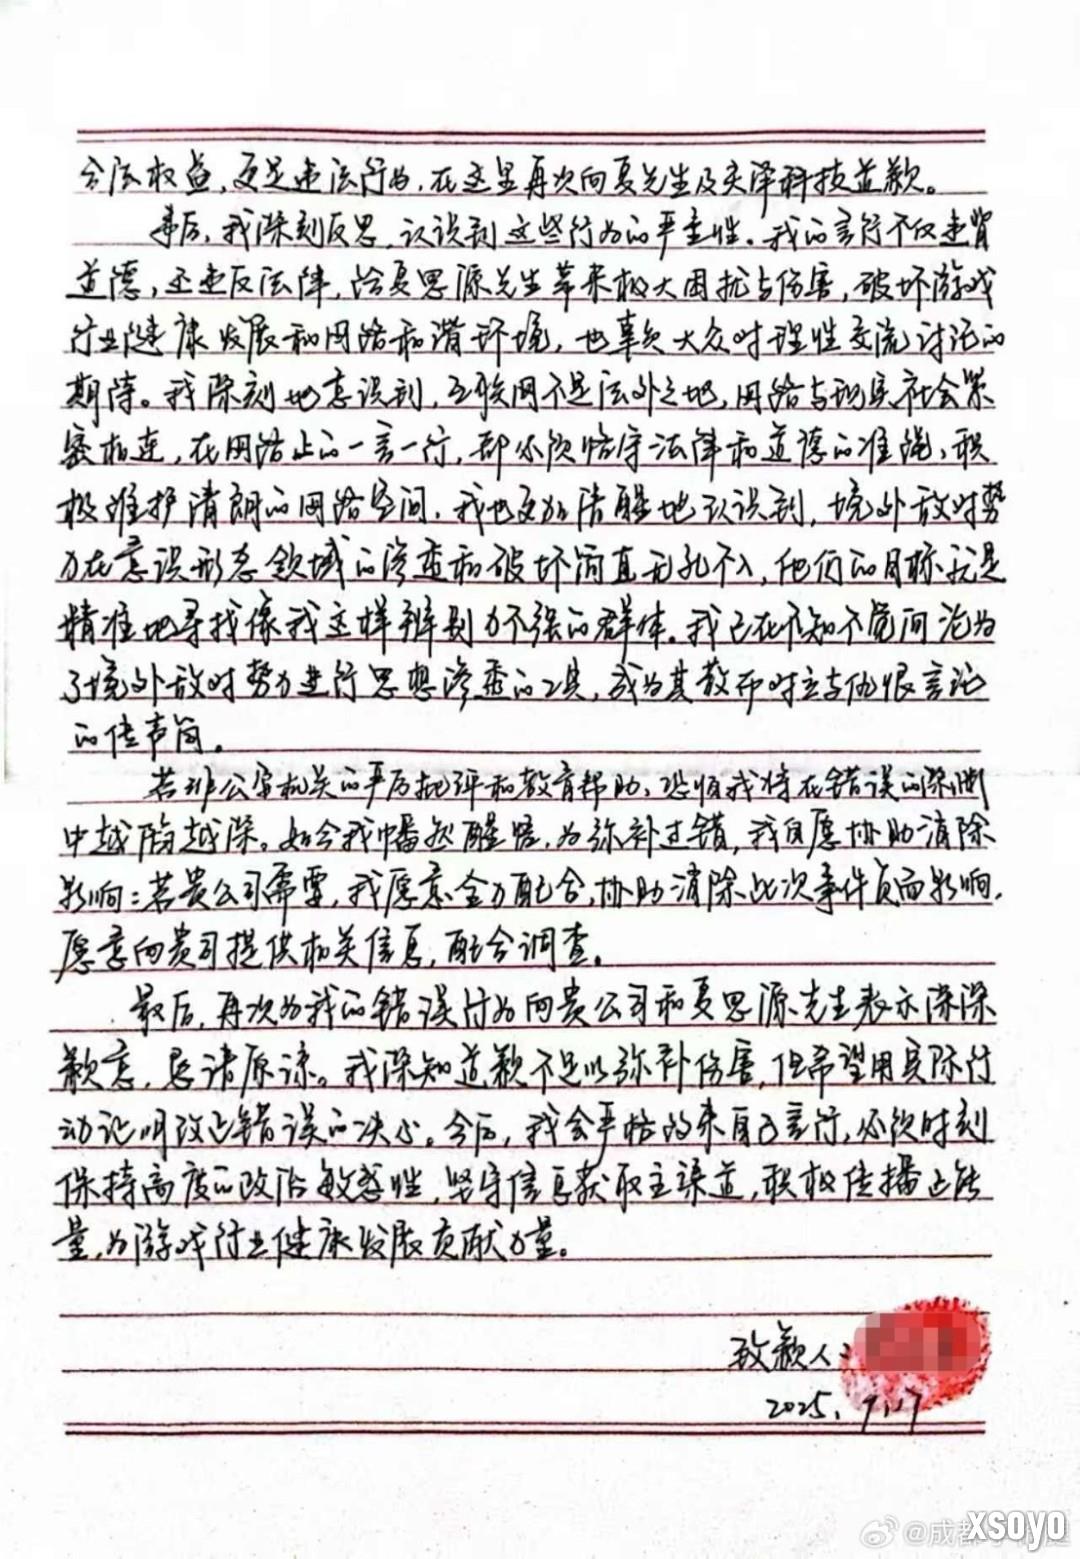 合法权益，更是违法行为，在这里再次向夏先生及灵泽科技道歉。
事后，我深刻反思，认识到这些行为的严重性。我的言行不仅违背
道德，还违反法律，给夏思源先生带来极大困扰与伤害，破坏游戏
行业健康发展和网络和谐环境，也辜负大众对理性交流讨论的
期待。我深刻地意识到，互联网不是法外之地，网络与现实社会紧
密相连，在网络上的一言一行，都必须恪守法律和道德的准绳，积
极维护清朗的网络空间。我也更加清醒地认识到，境外敌对势
力在意识形态领域的渗透和破坏简直无孔不入，他们的目标就是
精准地寻找像我这样辨别力不强的群体。我已在不知不觉间沦为
了境外敌对势力进行思想渗透的工具，成为其散布对立与仇恨言论
的传声筒。
若非公安机关的严厉批评和教育帮助，恐怕我将在错误的深渊
中越陷越深。如今我幡然醒悟，为弥补过错，我自愿协助消除
影响：若贵公司需要，我愿意全力配合，协助消除此次事件负面影响，
愿意向贵司提供相关信息，配合调查。
最后，再次为我的错误行为向贵公司和夏思源先生表示深深
歉意，恳请原谅。我深知道歉不足以弥补伤害，但希望用实际行
动证明改正错误的决心。今后，我会严格约束自己言行，必须时刻
保持高度的政治敏感性，坚守信息获取主渠道，积极传播正能
量，为游戏行业健康发展贡献力量。
致歉人：
2025.9.17
@成都
xsoyo